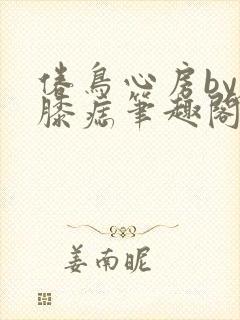 倦鸟心房by
膝痣笔趣阁
姜南昵